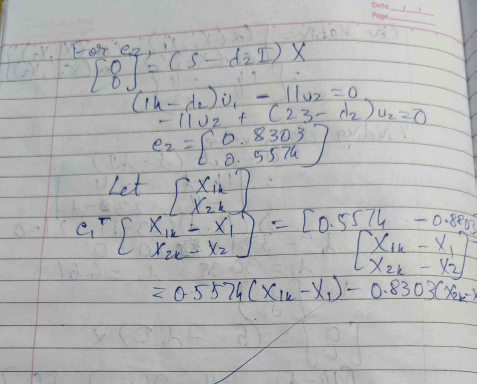 Date
Page
For e₂,
[0 0] = (S - d₂I) X
(14 - d₂)u₁ - 11u₂ = 0
- 11u₂ + (23 - d₂)u₂ = 0
e₂ = [0.8303 0.5574]
Let [X₁ₖ X₂ₖ]
e₁ᵀ [X₁ₖ - X₁ X₂ₖ - X₂] = [0.5574 - 0.8303
[X₁ₖ - X₁ X₂ₖ - X₂]
= 0.5574(X₁ₖ - X₁) - 0.8303(X₂ₖ - X